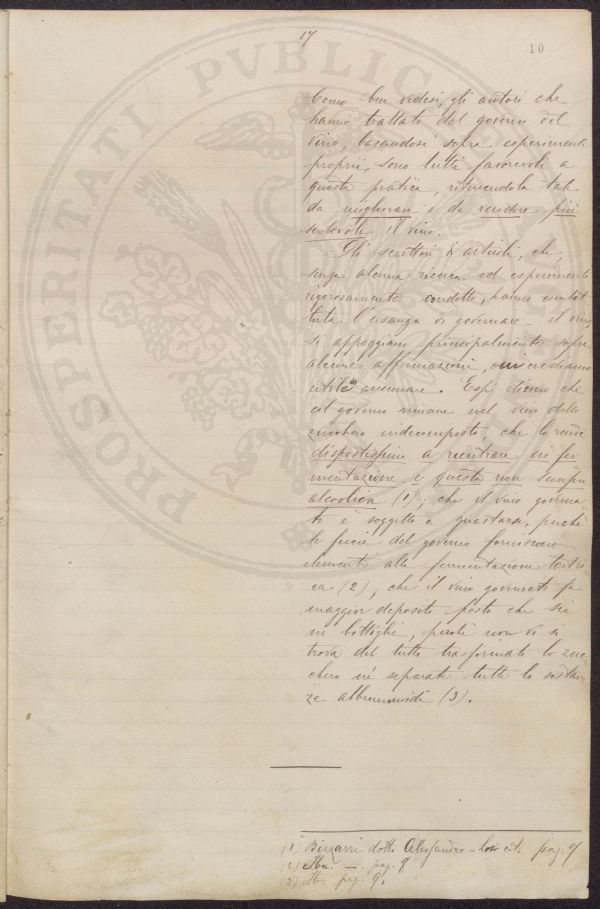 17
10
PROSPERITATI PVBLIC
Come ben vedesi, gli autori che
hanno trattato del governo del
vino, basandosi sopra esperimenti
proprii, sono tutti favorevoli a
questa pratica, ritenendola tale
da migliorare e da rendere più
serbevole il vino.
Gli scrittori di articoli, che,
senza alcuna ricerca ed esperimento
rigorosamente condotto, hanno combat
tuta l'usanza di governare il vino,
si appoggiano principalmente sopra
alcune affermazioni, che crediamo
utile accennare. Essi dicono che
col governo rimane nel vino dello
zucchero indecomposto, che lo rende
dispostissimo a rientrare in fer
mentazione e questa non sempre
alcoolica (1); che il vino governa
to è soggetto a guastarsi, perchè
le feccie del governo forniscono
elementi alla fermentazione tartri
ca (2); che il vino governato fa
maggior deposito posto che sia
in bottiglie, perchè non vi si
trova del tutto trasformato lo zuc
chero nè separate tutte le sostan
ze albuminoidi (3).
(1) Bizzarri dott. Alessandro - loco cit. pag. 7
(2) Ibi. — pag. 8
(3) Ib. pag. 9.